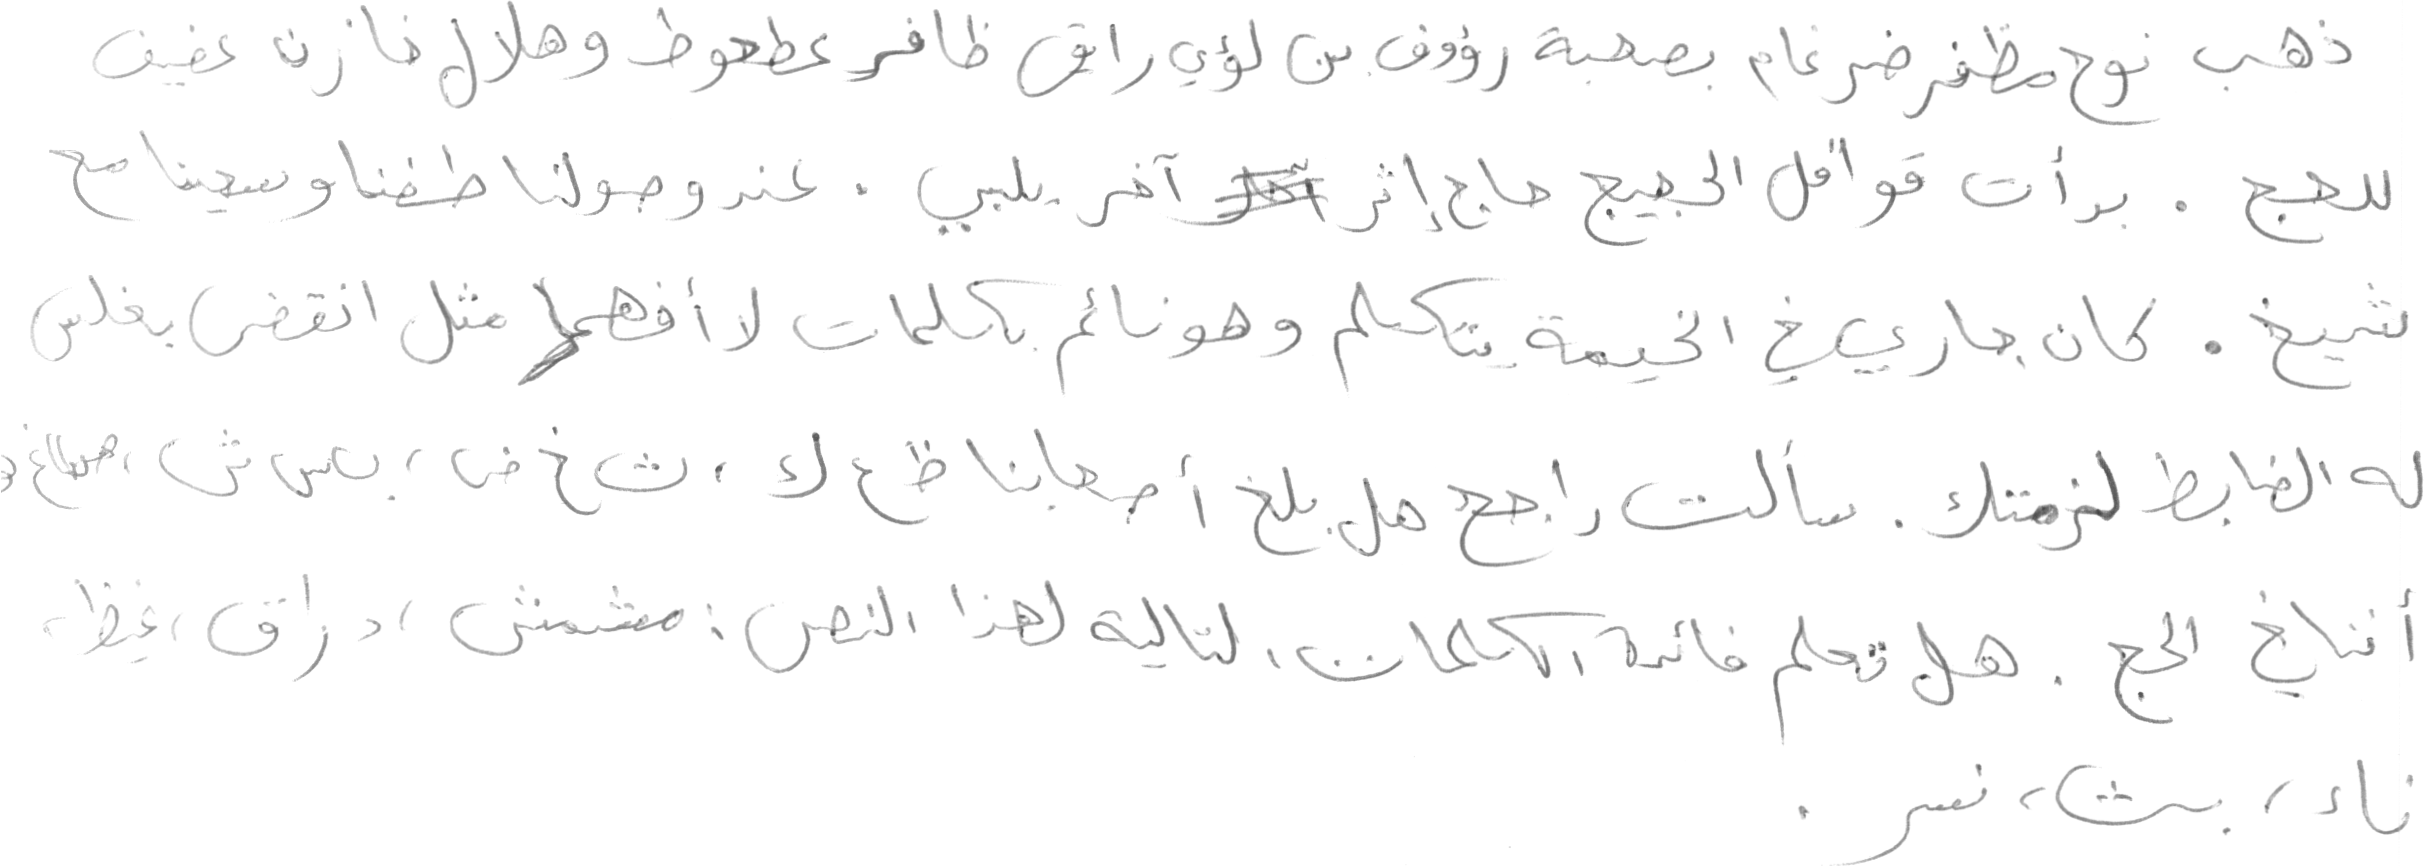 ذهب نوح مظفر ضرغام بصحبة رؤوف بن لؤي رايق ظافر عطعوط وهلال خازن عفيف
للحج . بدأت قوافل الحجيج حاج إثر آخر يلبي . عند وصولنا طفنا وسعينا مع
شيخ . كان جاري في الخيمة يتكلم وهو نائم بكلمات لا أفهمها مثل انقض بغلس
له الضابط لزمتك . سألت راجح هل بلغ أصحابنا ظ ع ك ، ث خ ض ، ب س ش ،
أثناغ الحج . هل تعلم فائدة الكلمات التالية لهذا النص : مشمش ، دراق ، غيظ ،
ناء ، بث ، نسر .